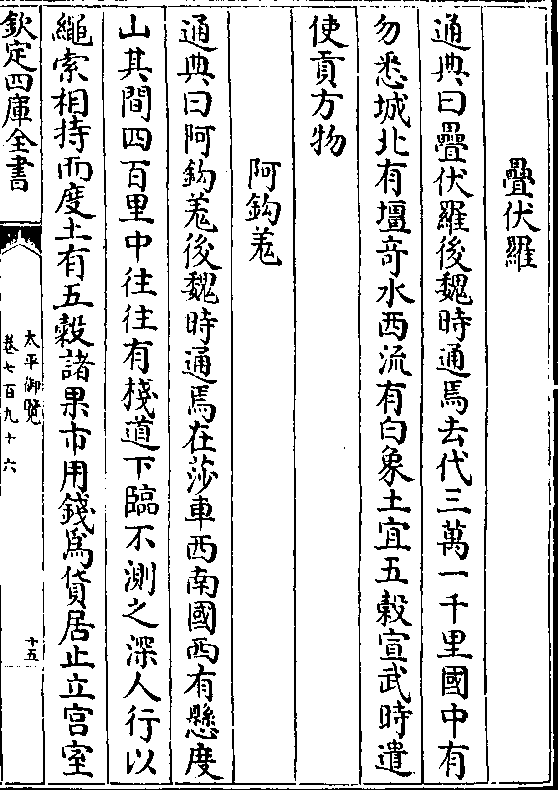 疊伏羅
通典曰疊伏羅後魏時通焉去代三萬一千里國中有
勿悉城北有壇竒水西流有白象土宜五榖宣武時遣
使貢方物
阿鈎羗
通典曰阿鈎羗後魏時通焉在莎車西南國西有懸度
山其間四百里中往往有棧道下臨不測之深人行以
繩索相持而度土有五榖諸果市用錢為貨居止立宫室
欽定四庫全書
太平御覽
卷七百九十六
十五